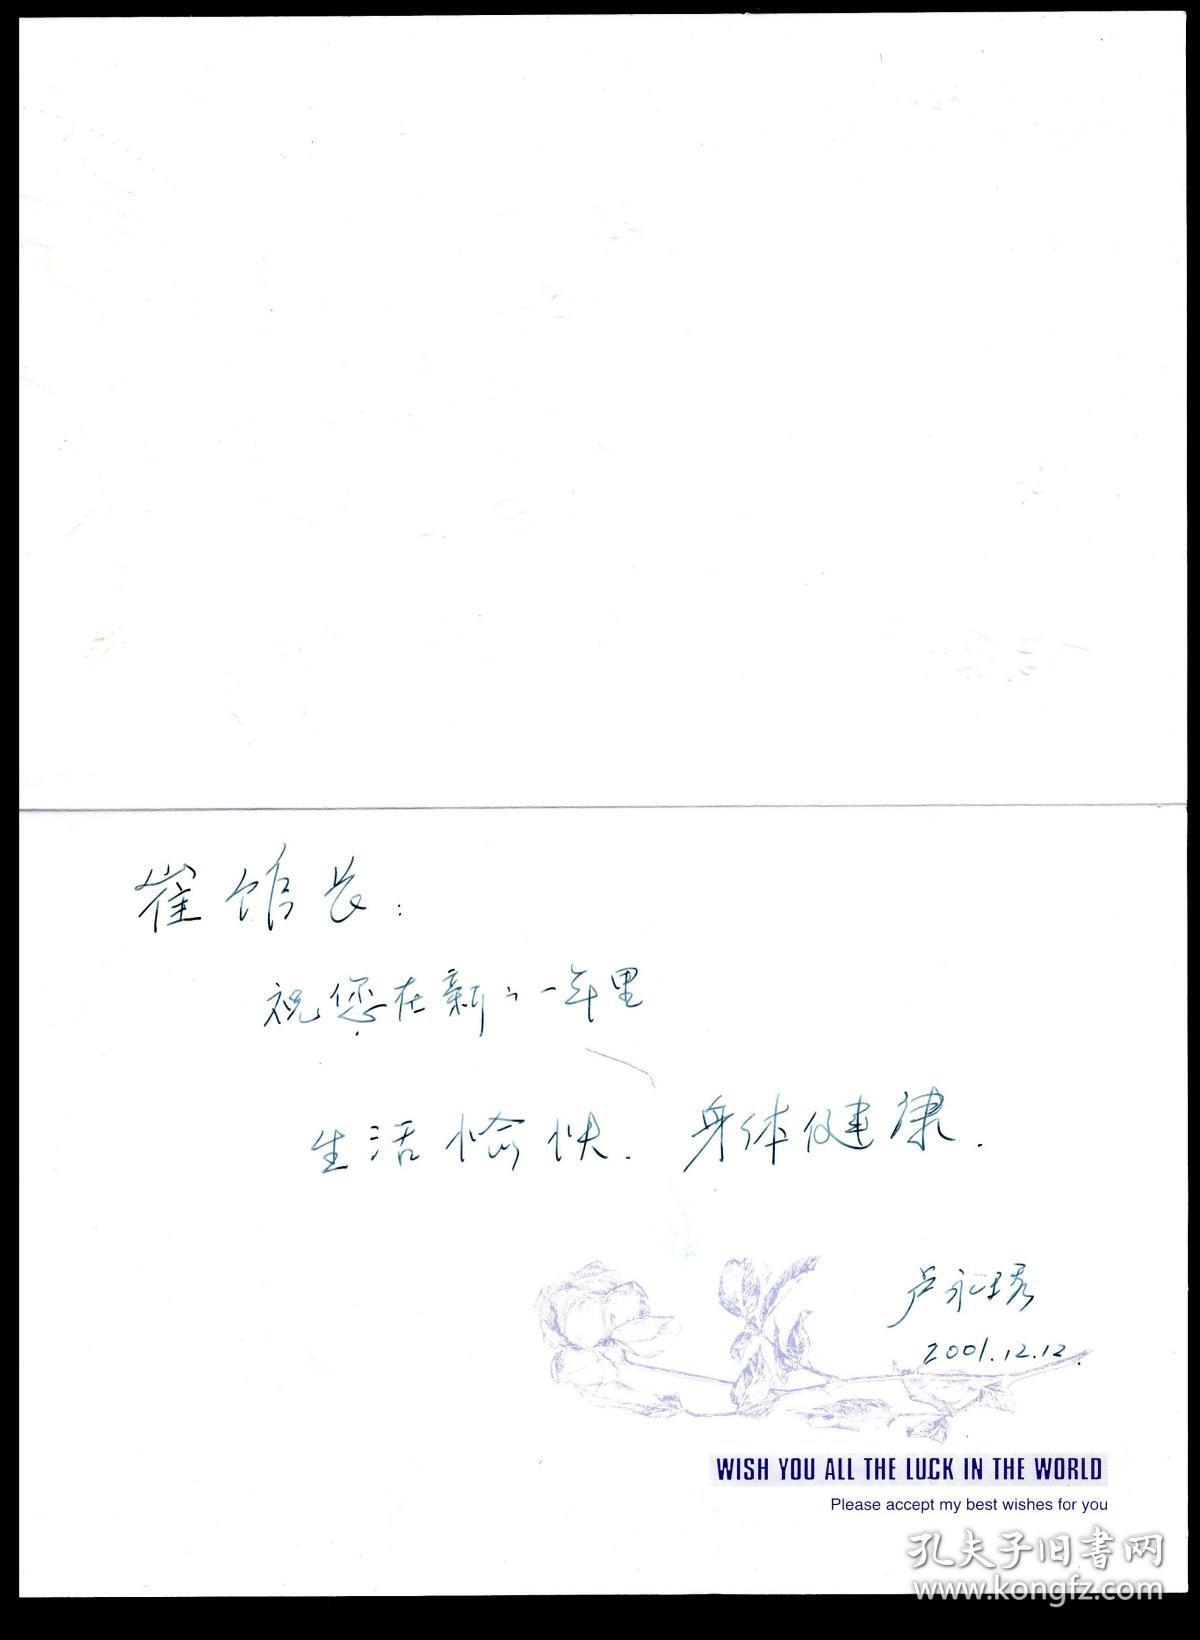 崔馆长：
祝您在新的一年里
生活愉快. 身体健康.
卢永琇
2001.12.12.
WISH YOU ALL THE LUCK IN THE WORLD
Please accept my best wishes for you
孔夫子旧书网
www.kongfz.com